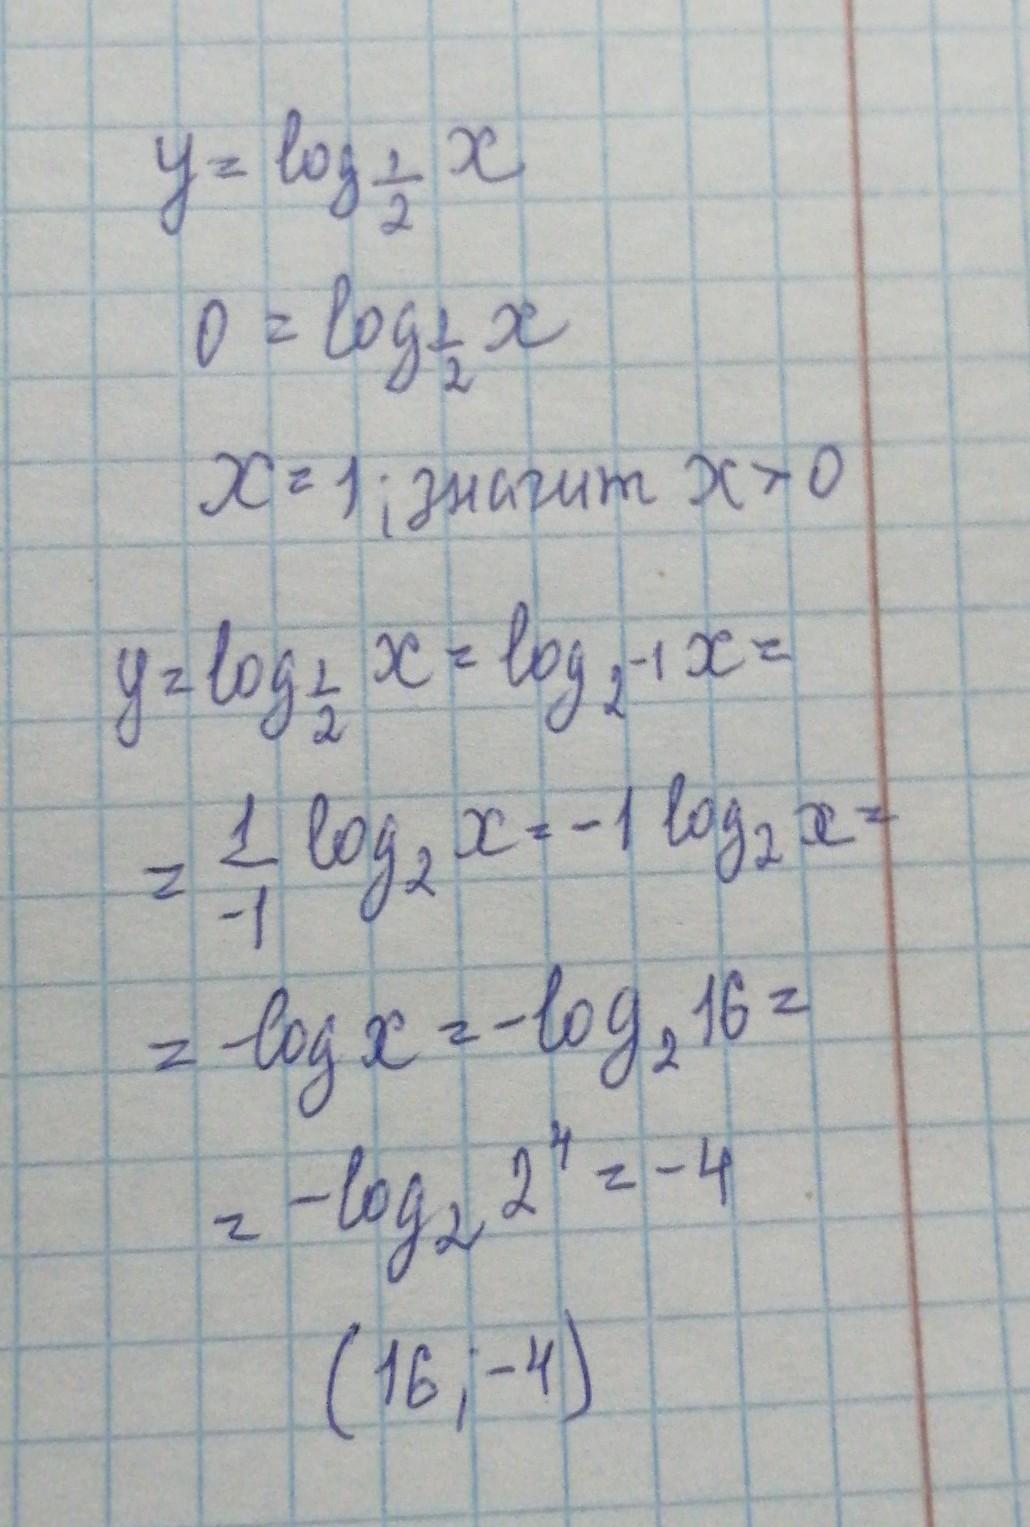 y = log_{1/2} x
0 = log_{1/2} x
x = 1; значит x > 0
y = log_{1/2} x = log_{2^{-1}} x =
= \frac{1}{-1} log_2 x = -1 log_2 x =
= -log x = -log_2 16 =
= -log_2 2^4 = -4
(16; -4)